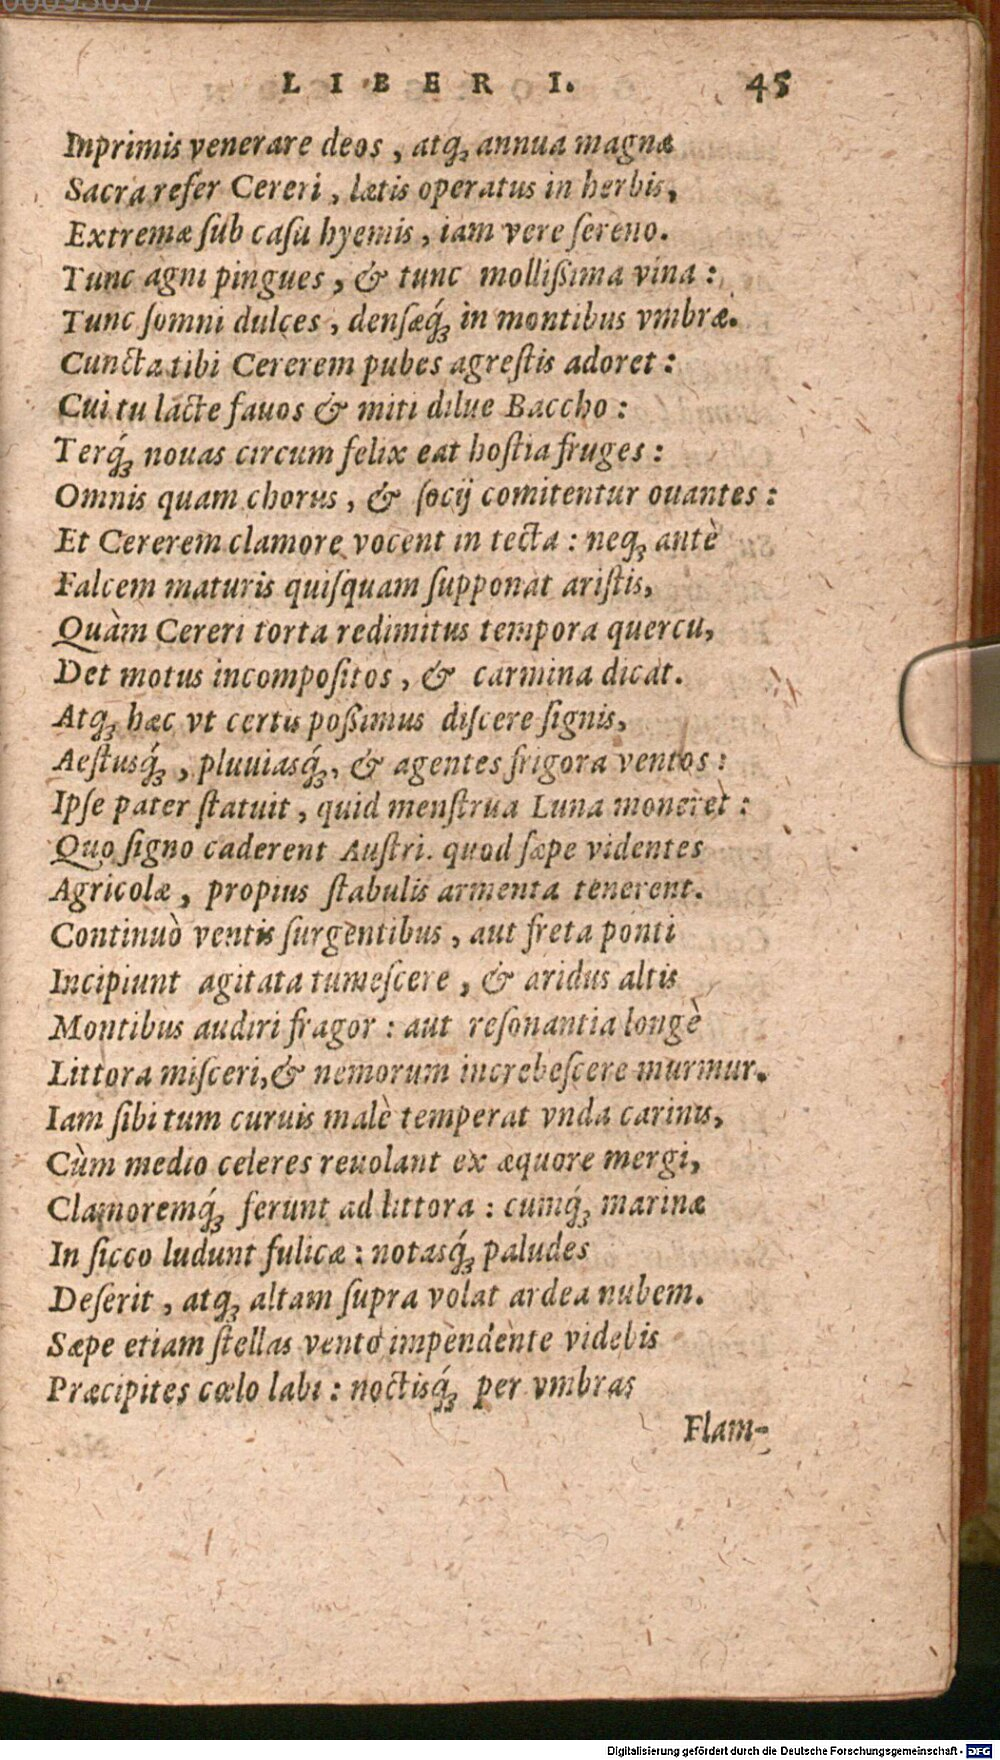 00093037
LIBER I. 45
Inprimis venerare deos, atq; annua magnæ
Sacra refer Cereri, lætis operatus in herbis,
Extremæ ſub caſu hyemis, iam vere ſereno.
Tunc agni pingues, & tunc molliſſima vina:
Tunc ſomni dulces, denſæq́; in montibus vmbræ.
Cuncta tibi Cererem pubes agreſtis adoret:
Cui tu lacte fauos & miti dilue Baccho:
Terq́; nouas circum felix eat hoſtia fruges:
Omnis quam chorus, & ſocij comitentur ouantes:
Et Cererem clamore vocent in tecta: neq; antè
Falcem maturis quiſquam ſupponat ariſtis,
Quàm Cereri torta redimitus tempora quercu,
Det motus incompoſitos, & carmina dicat.
Atq; hæc vt certis poſſimus diſcere ſignis,
Aeſtusq́;, pluuiasq́;, & agentes frigora ventos:
Ipſe pater ſtatuit, quid menſtrua Luna moneret:
Quo ſigno caderent Auſtri. quod ſæpe videntes
Agricolæ, propius ſtabulis armenta tenerent.
Continuò ventis ſurgentibus, aut freta ponti
Incipiunt agitata tumeſcere, & aridus altis
Montibus audiri fragor: aut reſonantia longè
Littora miſceri, & nemorum increbeſcere murmur.
Iam ſibi tum curuis malè temperat vnda carinis,
Cùm medio celeres reuolant ex æquore mergi,
Clamoremq́; ferunt ad littora: cumq́; marinæ
In ſicco ludunt fulicæ: notasq́; paludes
Deſerit, atq; altam ſupra volat ardea nubem.
Sæpe etiam ſtellas vento impendente videbis
Præcipites cœlo labi: noctisq́; per vmbras
Flam-
Digitalisierung gefördert durch die Deutsche Forschungsgemeinschaft - DFG